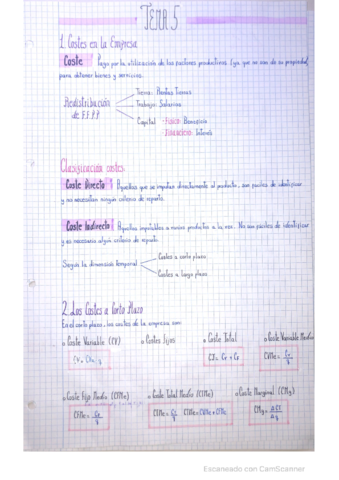 TEMA 5
1. Costes en la Empresa
Coste: Pago por la utilización de los factores productivos (ya que no son de su propiedad)
para obtener bienes y servicios.
Tierra: Rentas Tierras
Redistribución
de FF.PP
Trabajo: Salarios
Capital - Físico: Beneficio
- Financiero: Interés
Clasificación costes.
Coste Directo: Aquellos que se imputan directamente al producto, son fáciles de identificar
y no necesitan ningún criterio de reparto.
Coste Indirecto: Aquellos imputables a varios productos a la vez. No son fáciles de identificar
y es necesario algún criterio de reparto.
Según la dimensión temporal
Costes a corto plazo
Costes a largo plazo
2. Los Costes a Corto Plazo
En el corto plazo, los costes de la empresa son:
Coste Variable (CV)
Costes Fijos
Coste Total
Coste Variable Medio
CT = Cv + CF
CVMe = Cv/q
Coste Fijo Medio (CFMe)
Coste Total Medio (CTMe)
Coste Marginal (CMg)
CFMe = CF/q
CTMe = CT/q CTMe = CVMe + CFMe
CMg = ΔCT/Δq
Escaneado con CamScanner